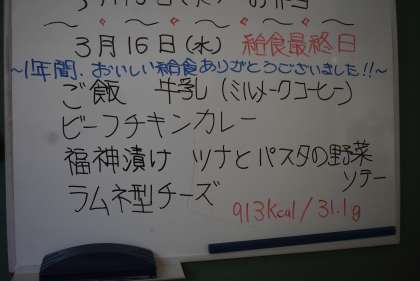 3月15日(火) お弁当
3月16日(水) 給食最終日
~1年間、おいしい給食ありがとうございました!!~
ご飯 牛乳(ミルメークコーヒー)
ビーフチキンカレー
福神漬け ツナとパスタの野菜
ソテー
ラムネ型チーズ
913Kcal/31.1g